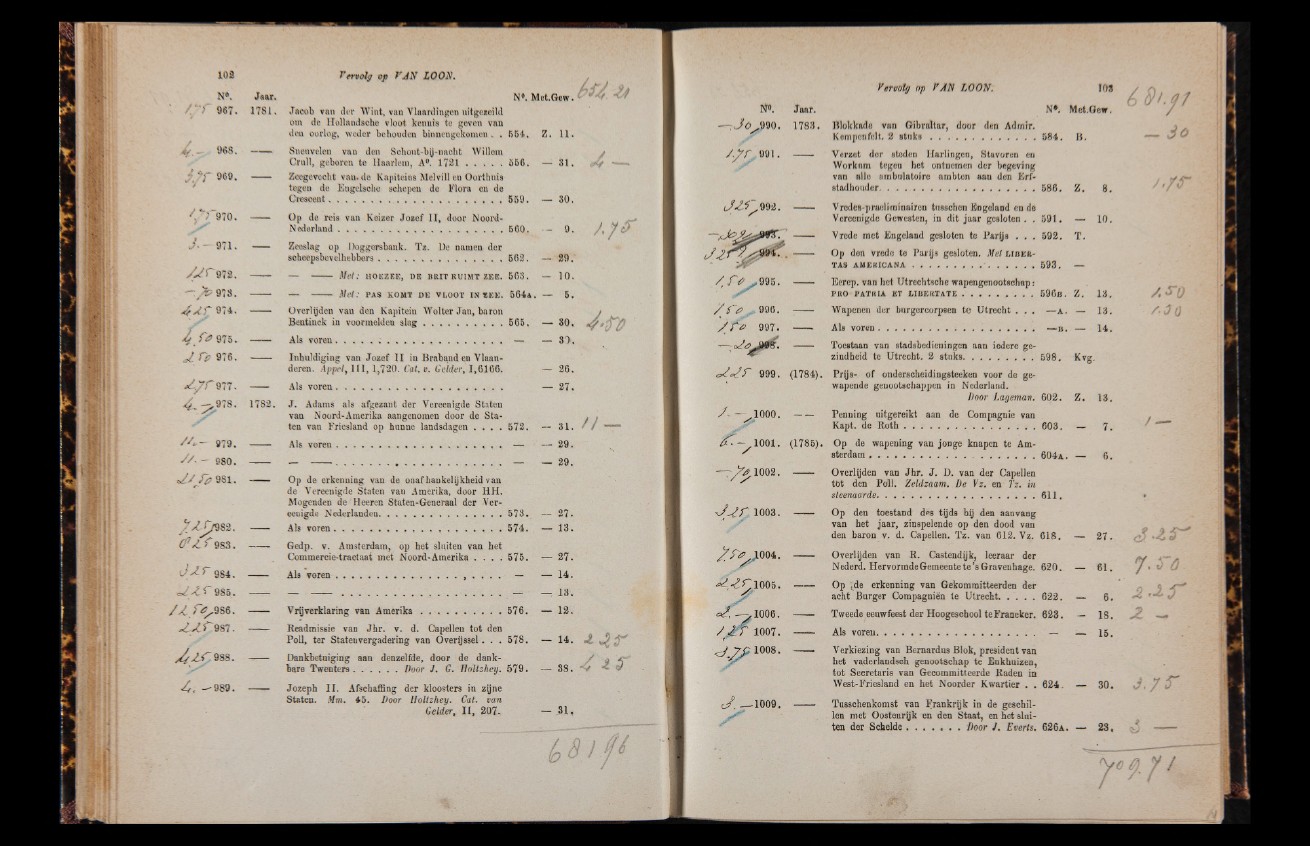 102 Vervolg op VAN LOON.
654.21
N°. Jaar. N°. Met.Gew.
1.75 967. 1781. Jacob van der Wint, van Vlaardingen uitgezeild
om de Hollandsche vloot kennis te geven van
den oorlog, weder behouden binnengekomen . . 554. Z. 11.
4.— 968. —— Sneuvelen van den Schout-bij-nacht Willem
Crull, geboren te Haarlem, A°. 1721 . . . . . 556. — 31. 4 —
3.75 969. —— Zeegevecht van de Kapiteins Melvill en Oorthuis
tegen de Engelsche schepen de Flora en de
Crescent . . . . . . . . . . . . . . . . . 559. — 30.
1.75 970. —— Op de reis van Keizer Jozef II, door Noord-
Nederland . . . . . . . . . . . . . . . . . 560. — 9. 1.75
3.— 971. —— Zeeslag op Doggersbank. Tz. De namen der
scheepsbevelhebbers . . . . . . . . . . . . . 562. — 29.
1.25 972. —— — —— Met: HOEZEE, DE BRIT RUIMT ZEE. 563. — 10.
—70 973. —— — —— Met: PAS KOMT DE VLOOT IN ZEE. 564A. — 5.
4.25 974. —— Overlijden van den Kapitein Wolter Jan, baron
Bentinck in voormelden slag . . . . . . . . . 565. — 30. 4.50
4.50 975. —— Als voren . . . . . . . . . . . . . . . . . — — 30.
2.50 976. —— Inhuldiging van Jozef II in Braband en Vlaan-
deren. Appel, III, 1,720. Cat. v. Gelder, I, 6166. — 26.
2.75 977. —— Als voren . . . . . . . . . . . . . . . . . — 27.
4.— 978. 1782. J. Adams als afgezant der Vereenigde Staten
van Noord-Amerika aangenomen door de Sta-
ten van Friesland op hunne landsdagen . . . . 572. — 31. 11 —
11.— 979. —— Als voren . . . . . . . . . . . . . . . . . — — 29.
11.— 980. —— — —— . . . . . . . . . . . . . . . . . — — 29.
21.50 981. —— Op de erkenning van de onafhankelijkheid van
de Vereenigde Staten van Amerika, door HH.
Mogenden de Heeren Staten-Generaal der Ver-
eenigde Nederlanden. . . . . . . . . . . . . 573. — 27.
7.25 982. —— Als voren . . . . . . . . . . . . . . . . . 574. — 13.
8.25 983. —— Gedp. v. Amsterdam, op het sluiten van het
Commercie-tractaat met Noord-Amerika . . . . 575. — 27.
3.25 984. —— Als voren . . . . . . . . . . . . . . . . . — — 14.
2.25 985. —— — —— . . . . . . . . . . . . . . . . . — — 13.
12.50 986. —— Vrijverklaring van Amerika . . . . . . . . . 576. — 12.
2.25 987. —— Readmissie van Jhr. v. d. Capellen tot den
Poll, ter Statenvergadering van Overijssel . . . 578. — 14. 2.25
4.25 988. —— Dankbetuiging aan denzelfde, door de dank-
bare Twenters . . . . . . Door J. G. Holtzhey. 579. — 38. 4.25
4.— 989. —— Jozeph II. Afschaffing der kloosters in zijne
Staten. Mm. 45. Door Holtzhey. Cat. van
Gelder, II, 207. — 31.
681 96
Vervolg op VAN LOON. 103
681.91
N°. Jaar. N°. Met.Gew.
—.30 990. 1783. Blokkade van Gibraltar, door den Admir.
Kempenfelt. 2 stuks . . . . . . . . . . . . . 584. B. — 30
1.75 991. —— Verzet der steden Harlingen, Stavoren en
Workum tegen het ontnemen der begeving
van alle ambulatoire ambten aan den Erf-
stadhouder. . . . . . . . . . . . . . . . . . 586. Z. 8. 1.75
3.25 992. —— Vredes-praeliminairen tusschen Engeland en de
Vereenigde Gewesten, in dit jaar gesloten . . 591. — 10.
993. —— Vrede met Engeland gesloten te Parijs . . . 592. T.
3.25 994. —— Op den vrede te Parijs gesloten. Met LIBER-
TAS AMERICANA . . . . . . . . . . . . . . 593. —
1.50 995. —— Eerep. van het Utrechtsche wapengenootschap:
PRO-PATRIA ET LIBERTATE . . . . . . . . . 596B. Z. 13. 1.50
1.50 996. —— Wapenen der burgercorpsen te Utrecht . . . —A. — 13. 1.50
1.50 997. —— Als voren . . . . . . . . . . . . . . . . . —B. — 14.
—.20 998. —— Toestaan van stadsbedieningen aan iedere ge-
zindheid te Utrecht. 2 stuks. . . . . . . . . . 598. Kvg.
2.25 999. (1784). Prijs- of onderscheidingsteeken voor de ge-
wapende genootschappen in Nederland.
Door Lageman. 602. Z. 13.
1.— 1000. —— Penning uitgereikt aan de Compagnie van
Kapt. de Roth . . . . . . . . . . . . . . . . 603. — 7. 1 —
6.— 1001. (1785). Op de wapening van jonge knapen te Am-
sterdam . . . . . . . . . . . . . . . . . . . 604A. — 6.
—.70 1002. —— Overlijden van Jhr. J. D. van der Capellen
tot den Poll. Zeldzaam. De Vz. en Tz. in
steenaarde. . . . . . . . . . . . . . . . . . 611.
3.25 1003. —— Op den toestand des tijds bij den aanvang
van het jaar, zinspelende op den dood van
den baron v. d. Capellen. Tz. van 612. Vz. 618. — 27. 3.25
7.50 1004. —— Overlijden van R. Castendijk, leeraar der
Nederd. Hervormde Gemeente te 's Gravenhage. 620. — 61. 7.50
2.25 1005. —— Op de erkenning van Gekommitteerden der
acht Burger Compagniën te Utrecht. . . . . 622. — 6. 2.25
2.— 1006. —— Tweede eeuwfeest der Hoogeschool te Franeker. 623. — 18. 2 —
1.25 1007. —— Als voren. . . . . . . . . . . . . . . . . . — — 15.
3.75 1008. —— Verkiezing van Bernardus Blok, president van
het vaderlandsch genootschap te Enkhuizen,
tot Secretaris van Gecommitteerde Raden in
West-Friesland en het Noorder Kwartier . . 624. — 30. 3.75
3.— 1009. —— Tusschenkomst van Frankrijk in de geschil-
len met Oostenrijk en den Staat, en het slui-
ten der Schelde . . . . . . . Door J. Everts. 626A. — 23. 3 —
709.71